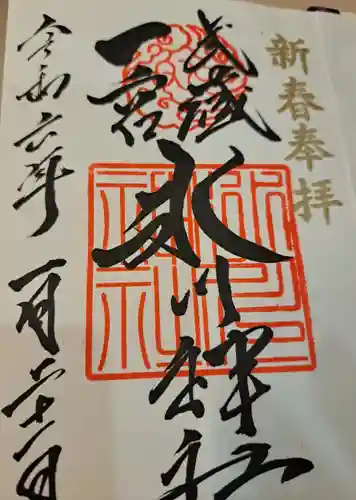 新春奉拝
武蔵
一宮
氷川神社
令和六年
一月二十一日